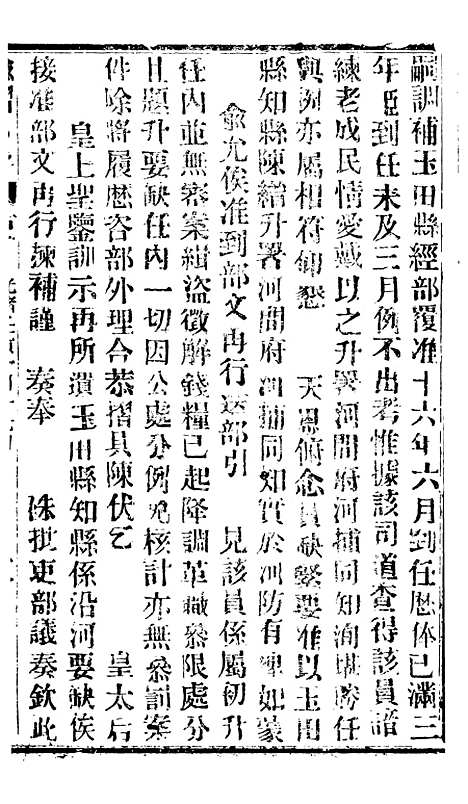 嗣調補玉田縣經部覆准十六年六月到任歷俸已滿三
年臣到任未及三月例不出考惟據該司道查得該員諳
練老成民情愛戴以之升署河間府河捕同知洵堪勝任
與例亦屬相符仰懇　天恩俯念員缺緊要准以玉田
縣知縣陳　升署河間府河捕同知實於河防有裨如蒙
俞允俟准到部文再行送部引　見該員係屬初升
任內並無案緝盜徵解錢糧已起降調革職叅限處分
且題升要缺任內一切因公處分例免核計亦無叅罰案
件除將履歷咨部外理合恭摺具陳伏乞　皇太后
皇上聖鑒訓示再所遺玉田縣知縣係沿河要缺俟
接准部文再行揀補謹　奏奉　硃批吏部議奏欽此